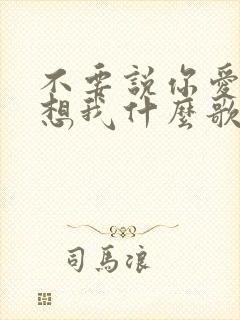 不要說你愛
想我什麼歌
司馬浪